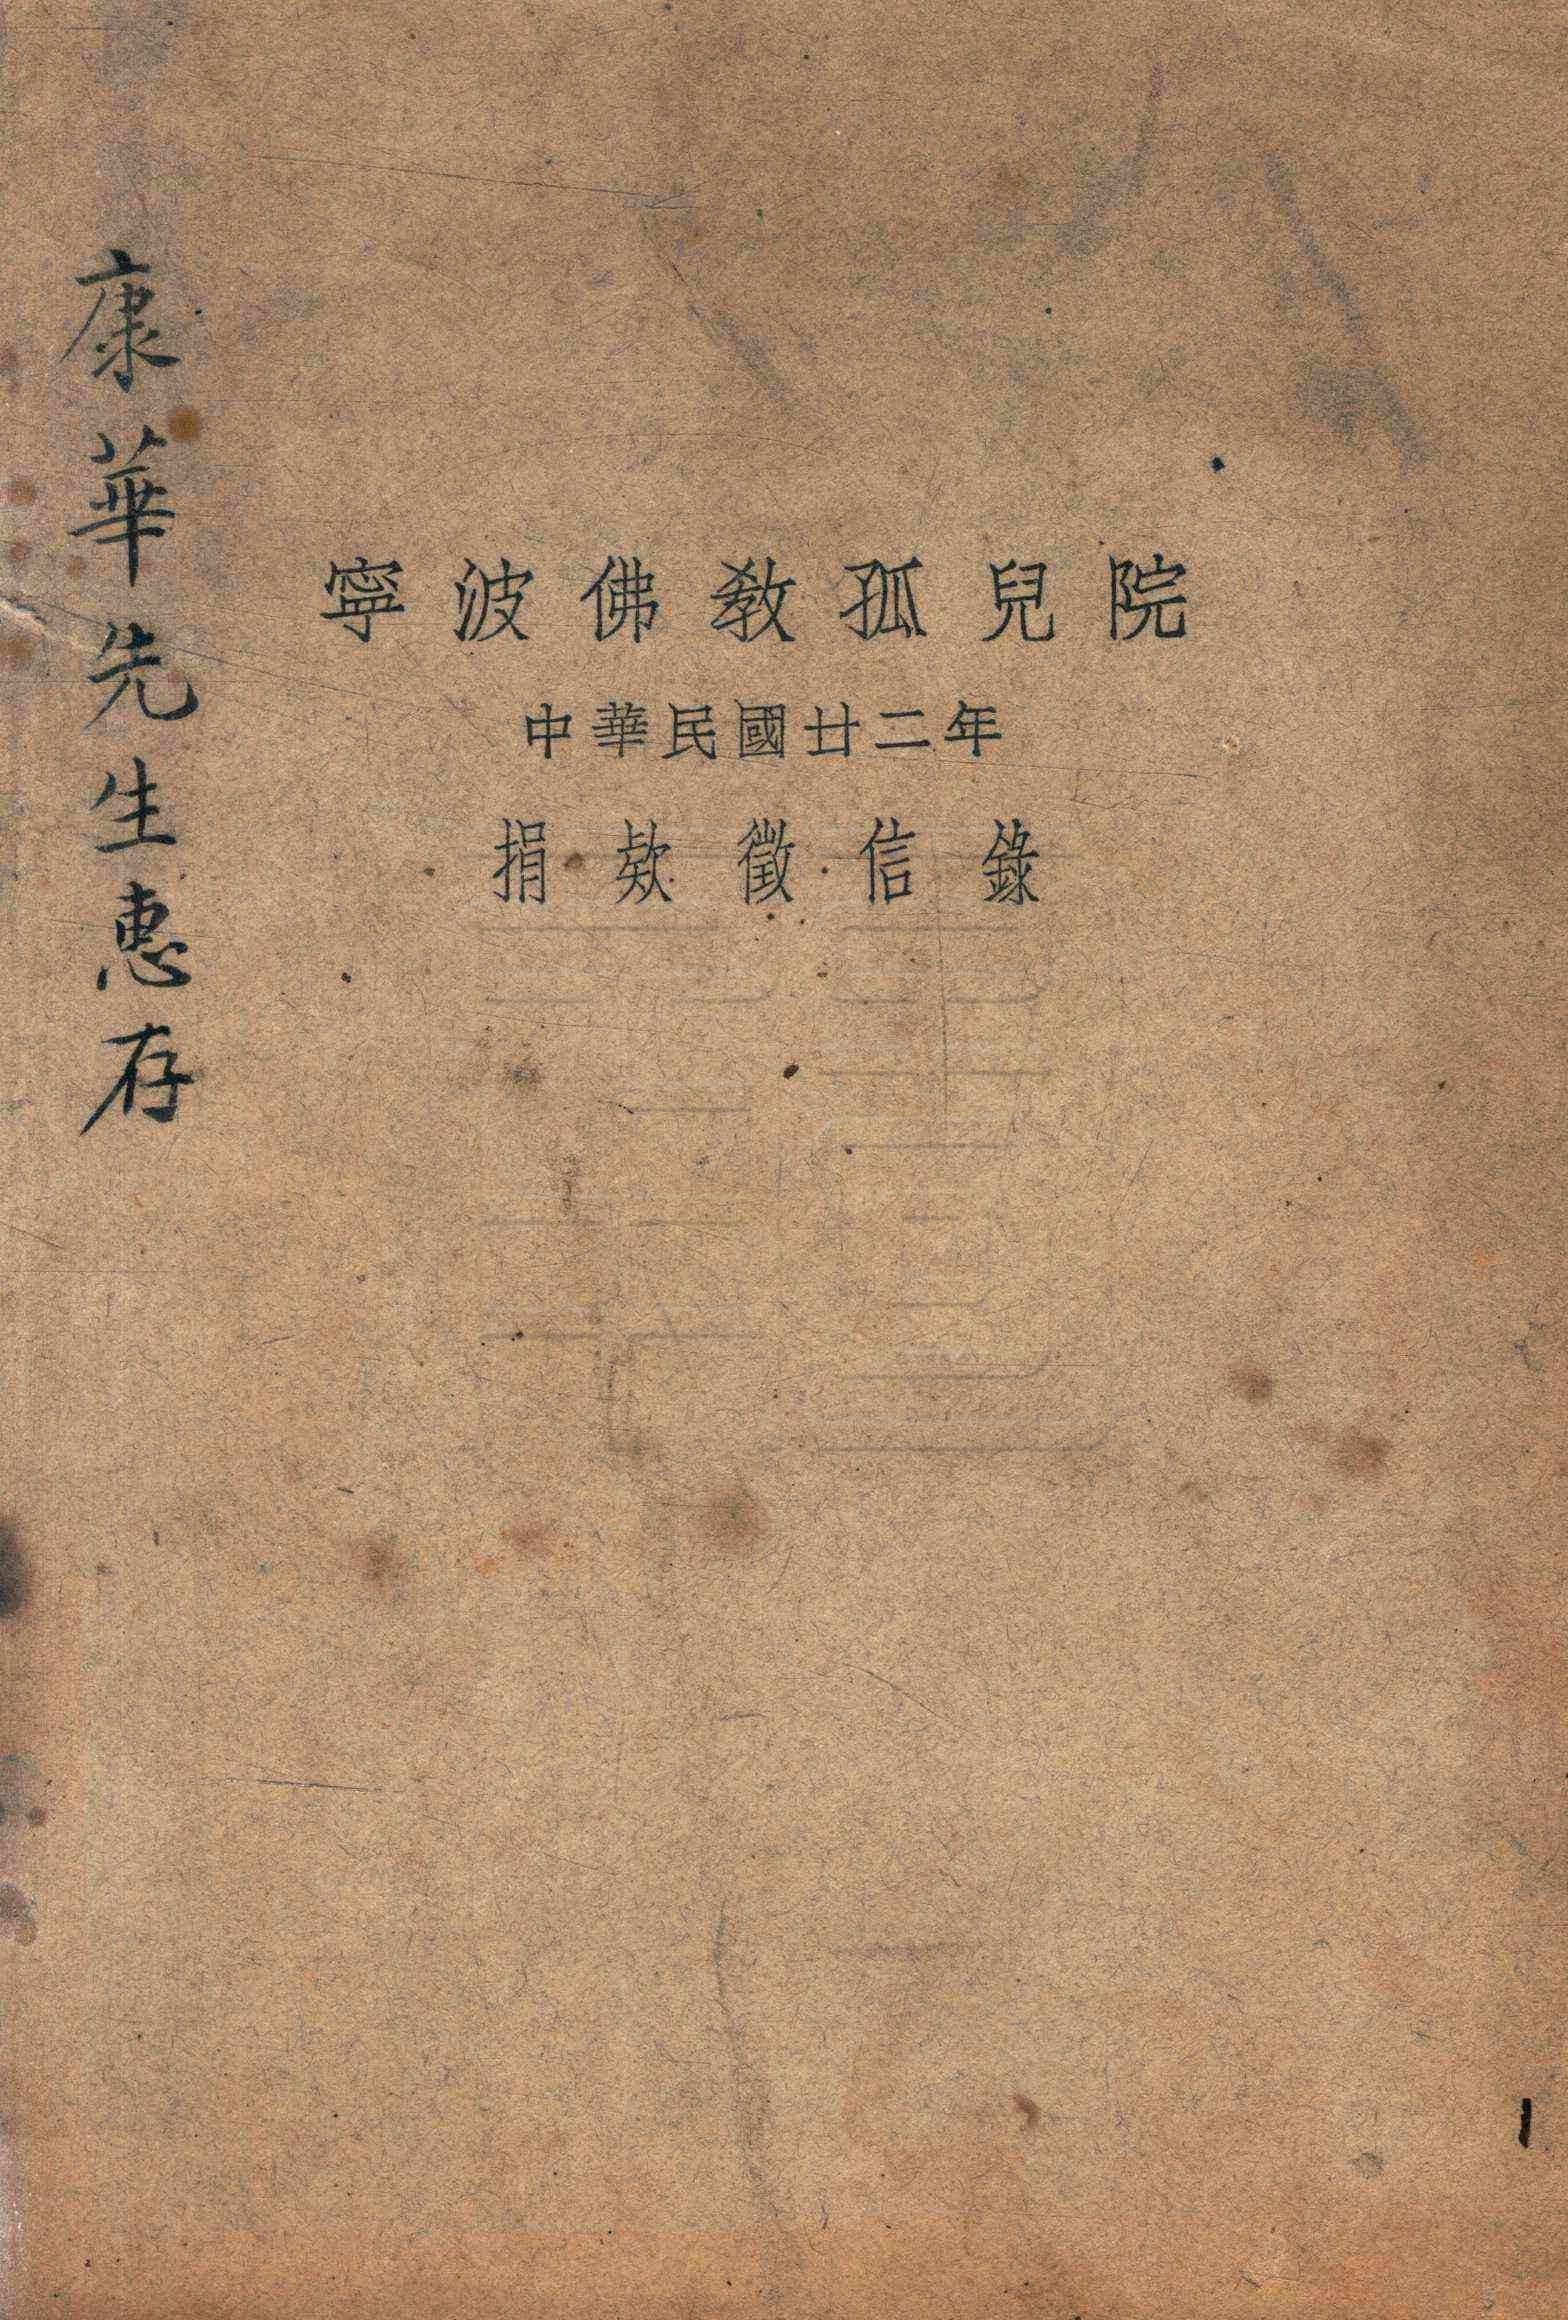 寧波佛教孤兒院
中華民國廿二年
捐款徵信錄
康華先生惠存